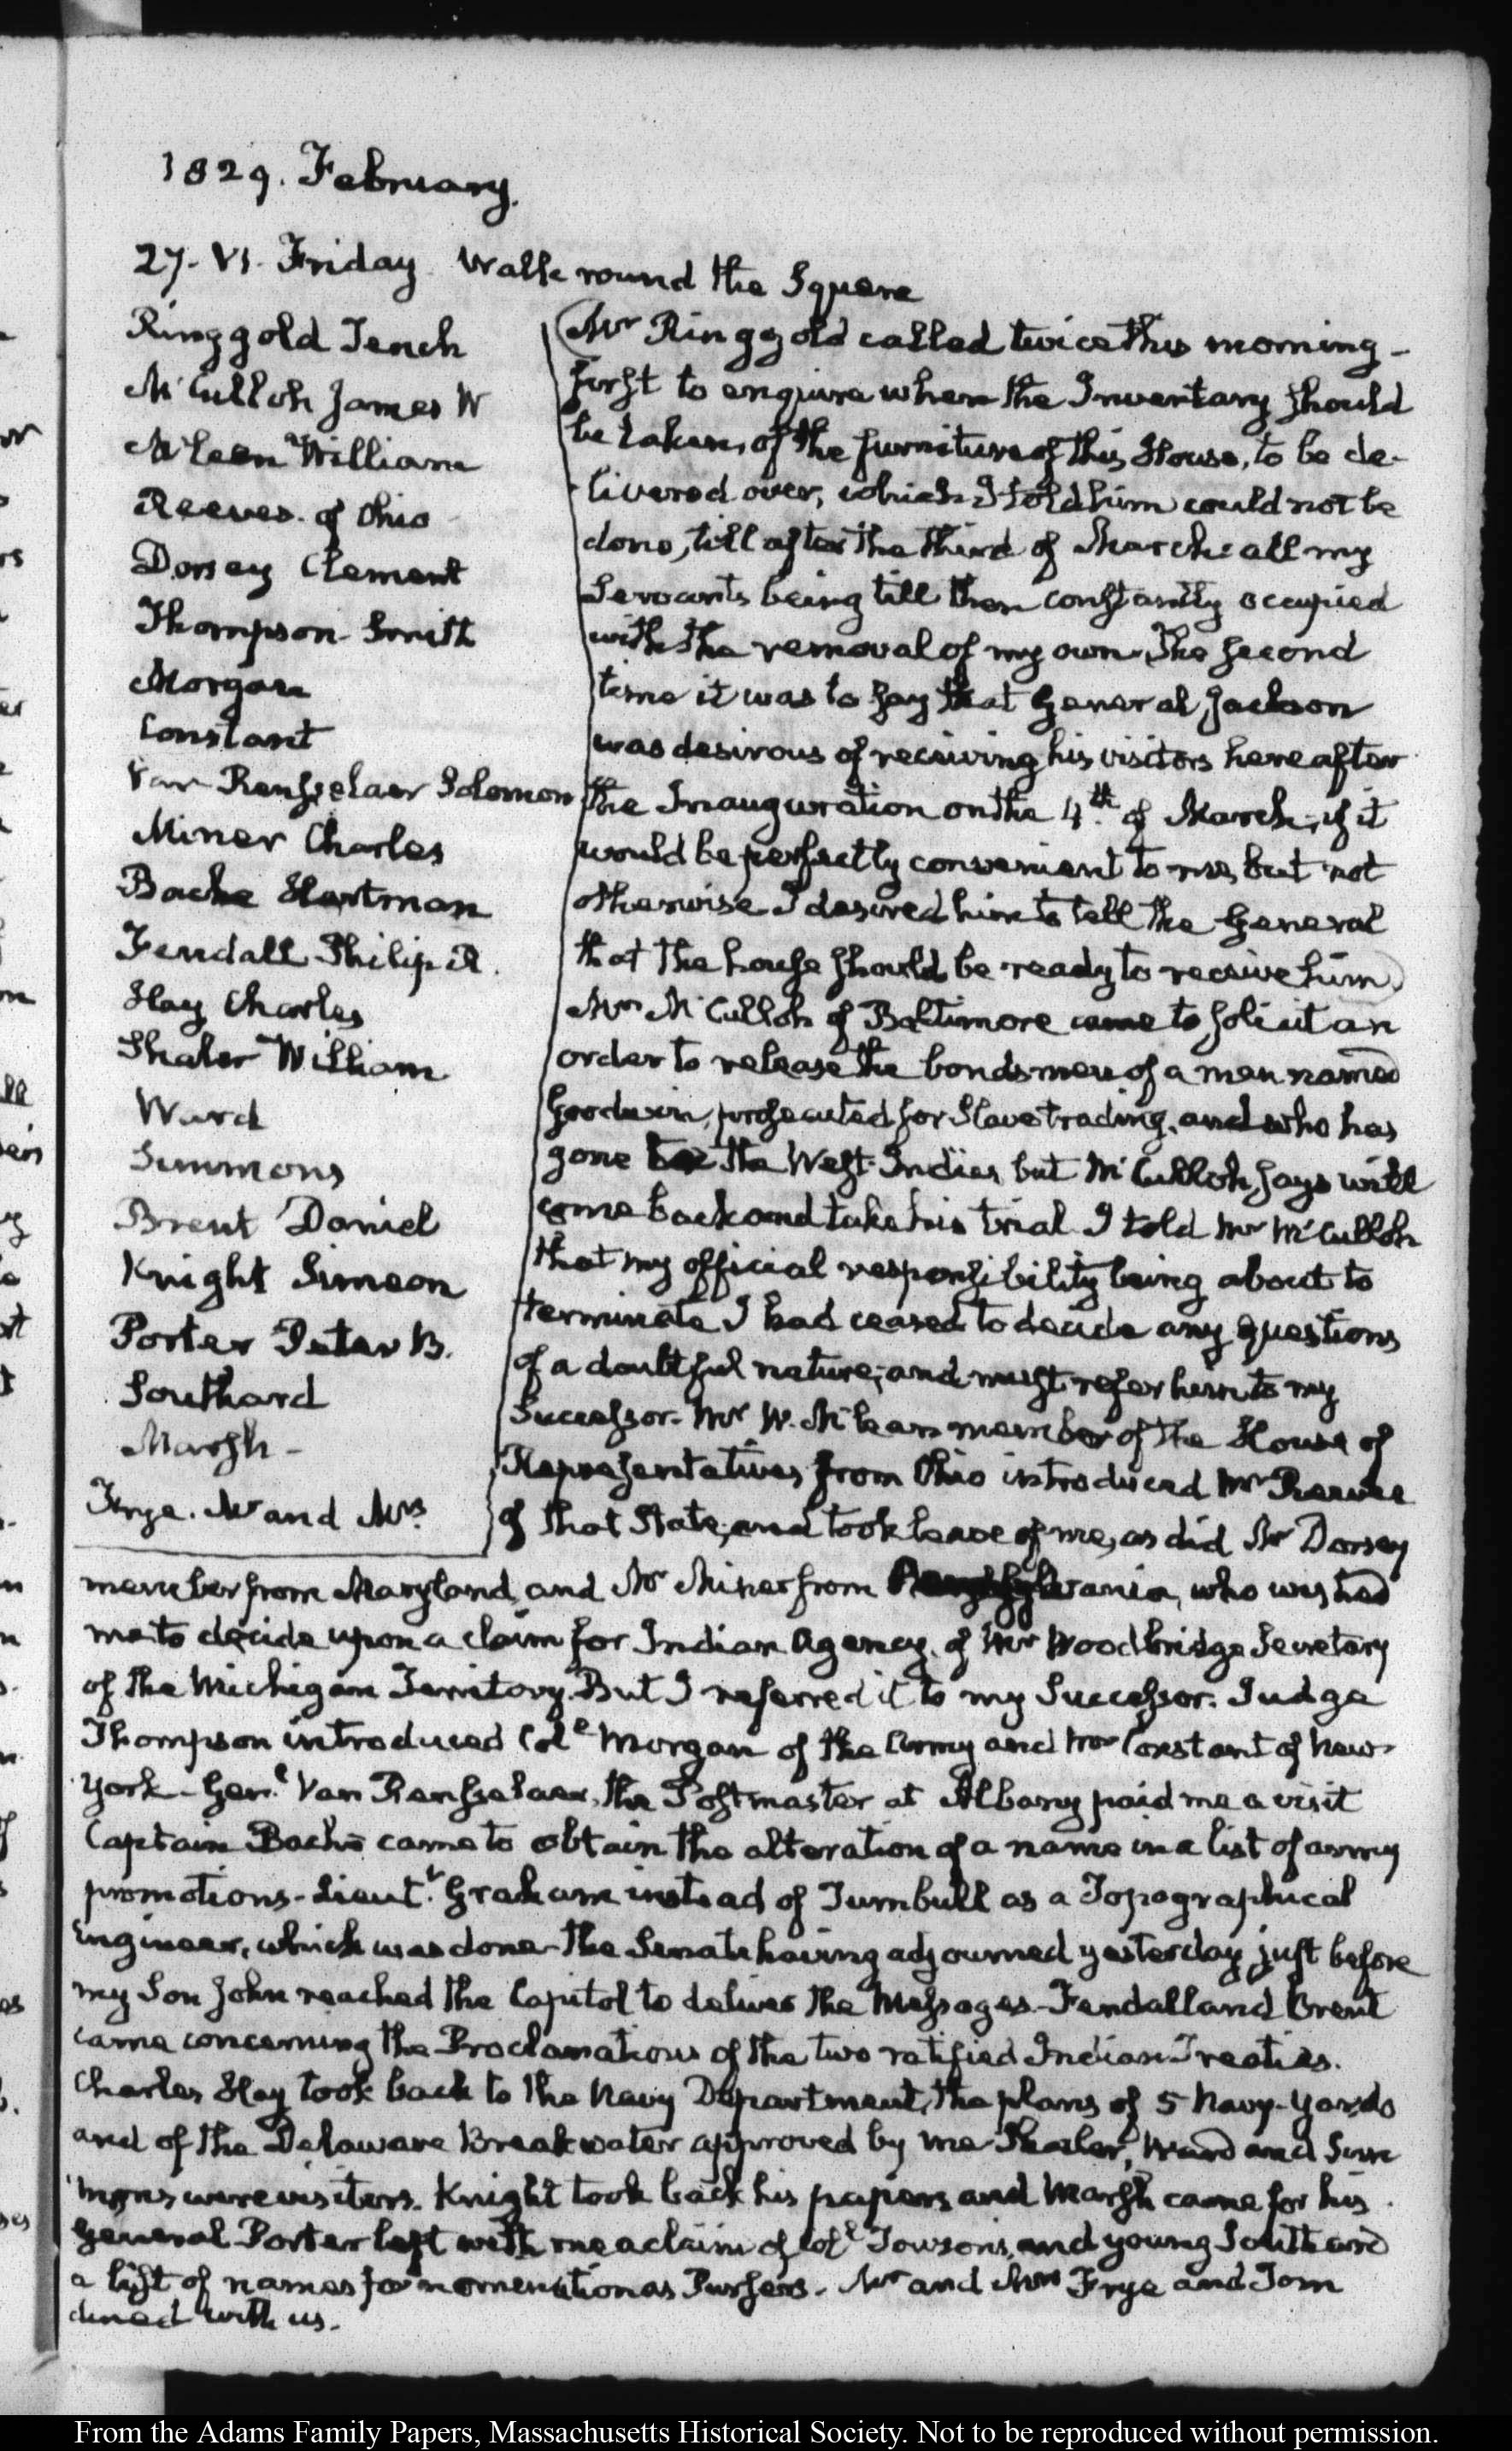 1829. February.
27. VI. Friday. Walk round the Square
Ringgold Tench
McCulloh James W
McLean William
Reeves. of Ohio
Dorsey Clement
Thompson Smith
Morgan
Constant
Van Rensselaer Solomon
Miner Charles
Bache Hartman
Fendall Philip R.
Hay Charles
Shaler William
Ward
Simmons
Brent Daniel
Knight Simeon
Porter Peter B.
Southard
Marsh -
Frye. Mr and Mrs.
Mr Ringgold called twice this morning -
first to enquire when the Inventary should
be taken, of the furniture of this House, to be de-
livered over, which I told him could not be
done, till after the third of March: all my
Servants being till then constantly occupied
with the removal of my own. The second
time it was to say that General Jackson
was desirous of receiving his visitors here after
the Inauguration on the 4th. of March, if it
would be perfectly convenient to me, but not
otherwise. I desired him to tell the General
that the house should be ready to receive him.
Mr McCulloh of Baltimore came to solicit an
order to release the bondsmen of a man named
Goodwin, prosecuted for Slave trading, and who has
gone to the West-Indies but McCulloh says will
come back and take his trial. I told Mr McCulloh
that my official responsibility being about to
terminate I had ceased to decide any questions
of a doubtful nature; and must refer him to my
Successor. Mr W. McLean member of the House of
Representatives from Ohio introduced Mr Reeves
of that State, and took leave of me, as did Mr Dorsey
member from Maryland, and Mr Miner from Pennsylvania, who wished
me to decide upon a claim for Indian Agency, of Mr Woodbridge Secretary
of the Michigan Territory. But I referred it to my Successor. Judge
Thompson introduced Coll Morgan of the Army and Mr Constant of New-
York - Genl. Van Rensselaer, the Postmaster at Albany paid me a visit
Captain Bache came to obtain the alteration of a name in a list of army
promotions - Lieutt. Graham instead of Turnbull as a Topographical
Engineer, which was done - the Senate having adjourned yesterday just before
my Son John reached the Capitol to deliver the Messages. Fendall and Brent
came concerning the Proclamations of the two ratified Indian Treaties.
Charles Hay took back to the Navy Department, the plans of 5 Navy-Yards
and of the Delaware Breakwater approved by me. Shaler, Ward and Sim
mons were visitors. Knight took back his papers and Marsh came for his.
General Porter left with me a claim of Coll Towson's, and young Southard
a list of names for nomination as Pursers. Mr and Mrs Frye and Tom
dined with us.
From the Adams Family Papers, Massachusetts Historical Society. Not to be reproduced without permission.